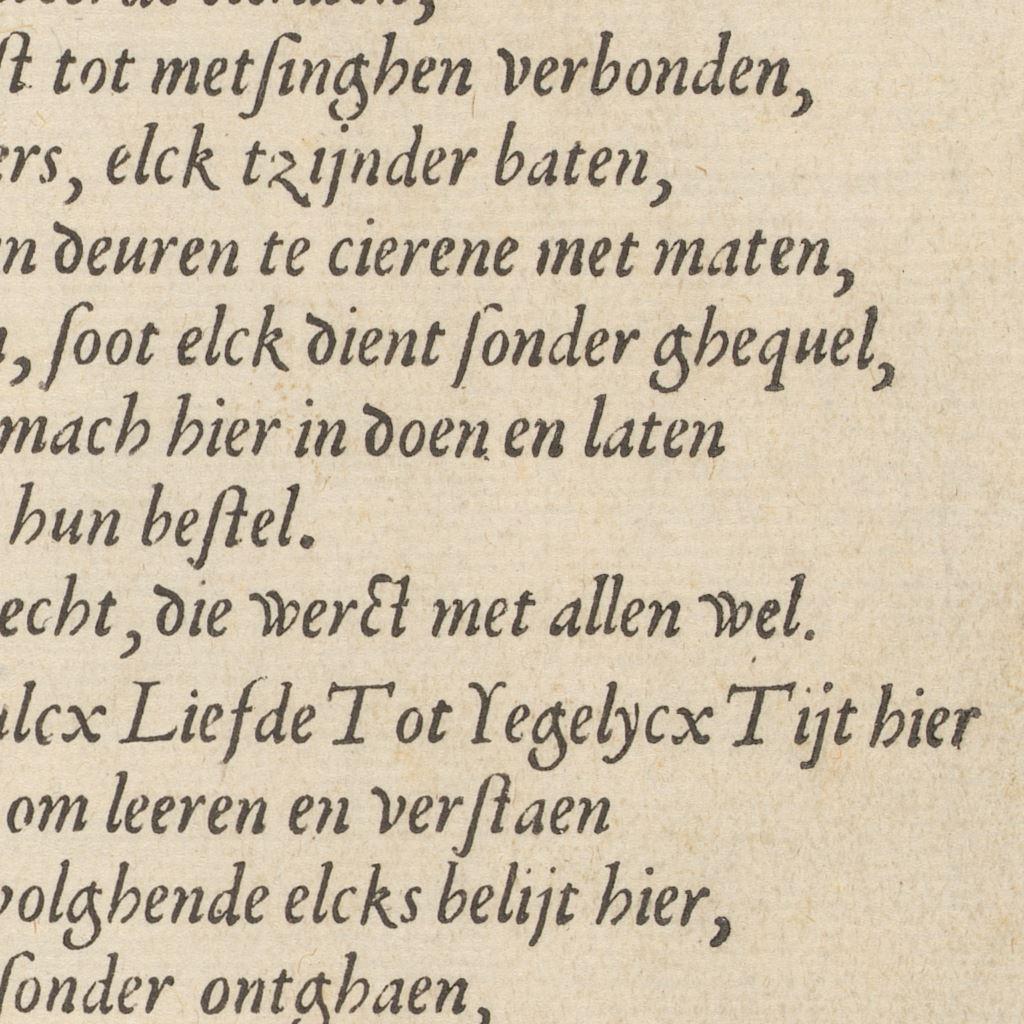 tot metsinghen verbonden,
elck tzijnder baten,
deuren te cierene met maten,
soot elck dient sonder ghequel,
mach hier in doen en laten
hun bestel.
die werct met allen wel.
Liefde Tot Yegelycx Tijt hier
om leeren en verstaen
volghende elcks belijt hier,
sonder ontghaen,